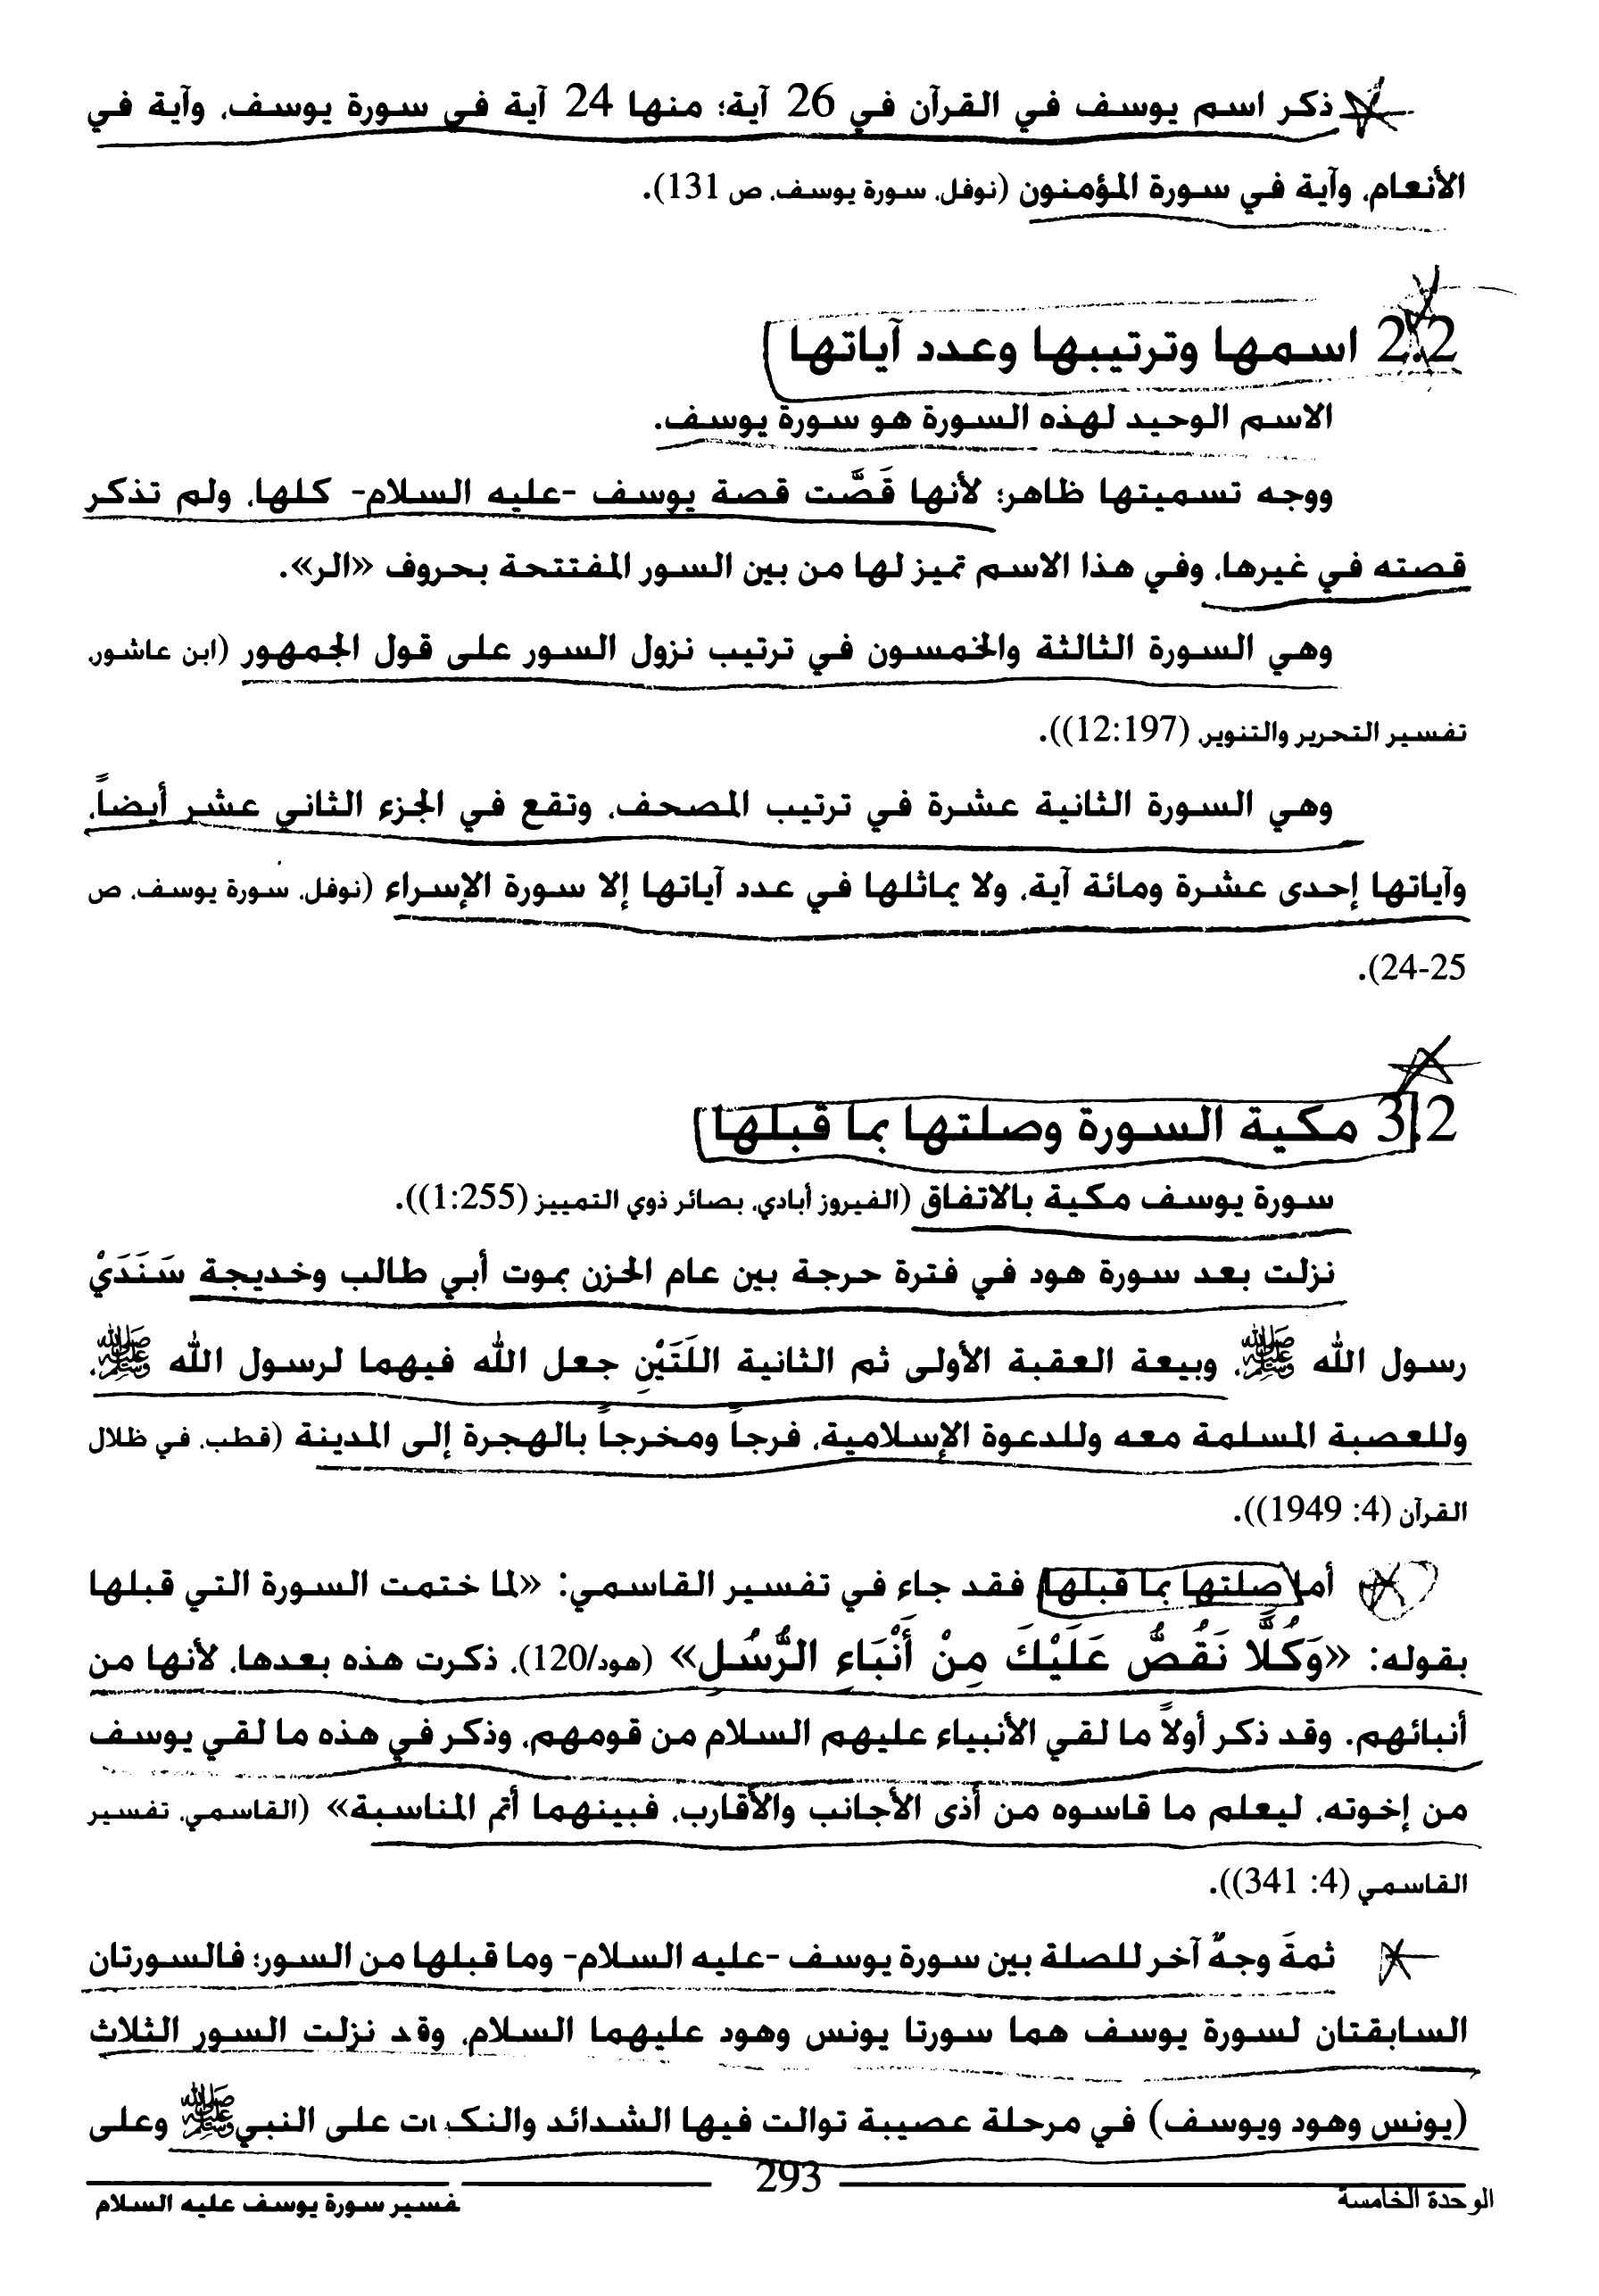 ذكر اسم يوسف في القرآن في 26 آية؛ منها 24 آية في سورة يوسف، وآية في
الأنعام، وآية في سورة المؤمنون (نوفل، سورة يوسف، ص 131).
2.2 اسمها وترتيبها وعدد آياتها
الاسم الوحيد لهذه السورة هو سورة يوسف.
ووجه تسميتها ظاهر؛ لأنها قَصَّت قصة يوسف -عليه السلام- كلها، ولم تذكر
قصته في غيرها، وفي هذا الاسم تميز لها من بين السور المفتتحة بحروف «الر».
وهي السورة الثالثة والخمسون في ترتيب نزول السور على قول الجمهور (ابن عاشور،
تفسير التحرير والتنوير، (12:197)).
وهي السورة الثانية عشرة في ترتيب المصحف، وتقع في الجزء الثاني عشر أيضاً،
وآياتها إحدى عشرة ومائة آية، ولا يماثلها في عدد آياتها إلا سورة الإسراء (نوفل، سورة يوسف، ص
24-25).
3.2 مكية السورة وصلتها بما قبلها
سورة يوسف مكية بالاتفاق (الفيروز أبادي، بصائر ذوي التمييز (1:255)).
نزلت بعد سورة هود في فترة حرجة بين عام الحزن بموت أبي طالب وخديجة سَنَدَيْ
رسول الله ﷺ، وبيعة العقبة الأولى ثم الثانية اللَتَيْنِ جعل الله فيهما لرسول الله ﷺ،
وللعصبة المسلمة معه وللدعوة الإسلامية، فرجاً ومخرجاً بالهجرة إلى المدينة (قطب، في ظلال
القرآن (4: 1949)).
أما صلتها بما قبلها فقد جاء في تفسير القاسمي: «لما ختمت السورة التي قبلها
بقوله: «وَكُلًّا نَقُصُّ عَلَيْكَ مِنْ أَنْبَاءِ الرُّسُلِ» (هود/120)، ذكرت هذه بعدها، لأنها من
أنبائهم. وقد ذكر أولاً ما لقي الأنبياء عليهم السلام من قومهم، وذكر في هذه ما لقي يوسف
من إخوته، ليعلم ما قاسوه من أذى الأجانب والأقارب، فبينهما أتم المناسبة» (القاسمي، تفسير
القاسمي (4: 341)).
ثمةَ وجهٌ آخر للصلة بين سورة يوسف -عليه السلام- وما قبلها من السور؛ فالسورتان
السابقتان لسورة يوسف هما سورتا يونس وهود عليهما السلام، وقد نزلت السور الثلاث
(يونس وهود ويوسف) في مرحلة عصيبة توالت فيها الشدائد والنكبات على النبي ﷺ وعلى
293
الوحدة الخامسة
فسير سورة يوسف عليه السلام